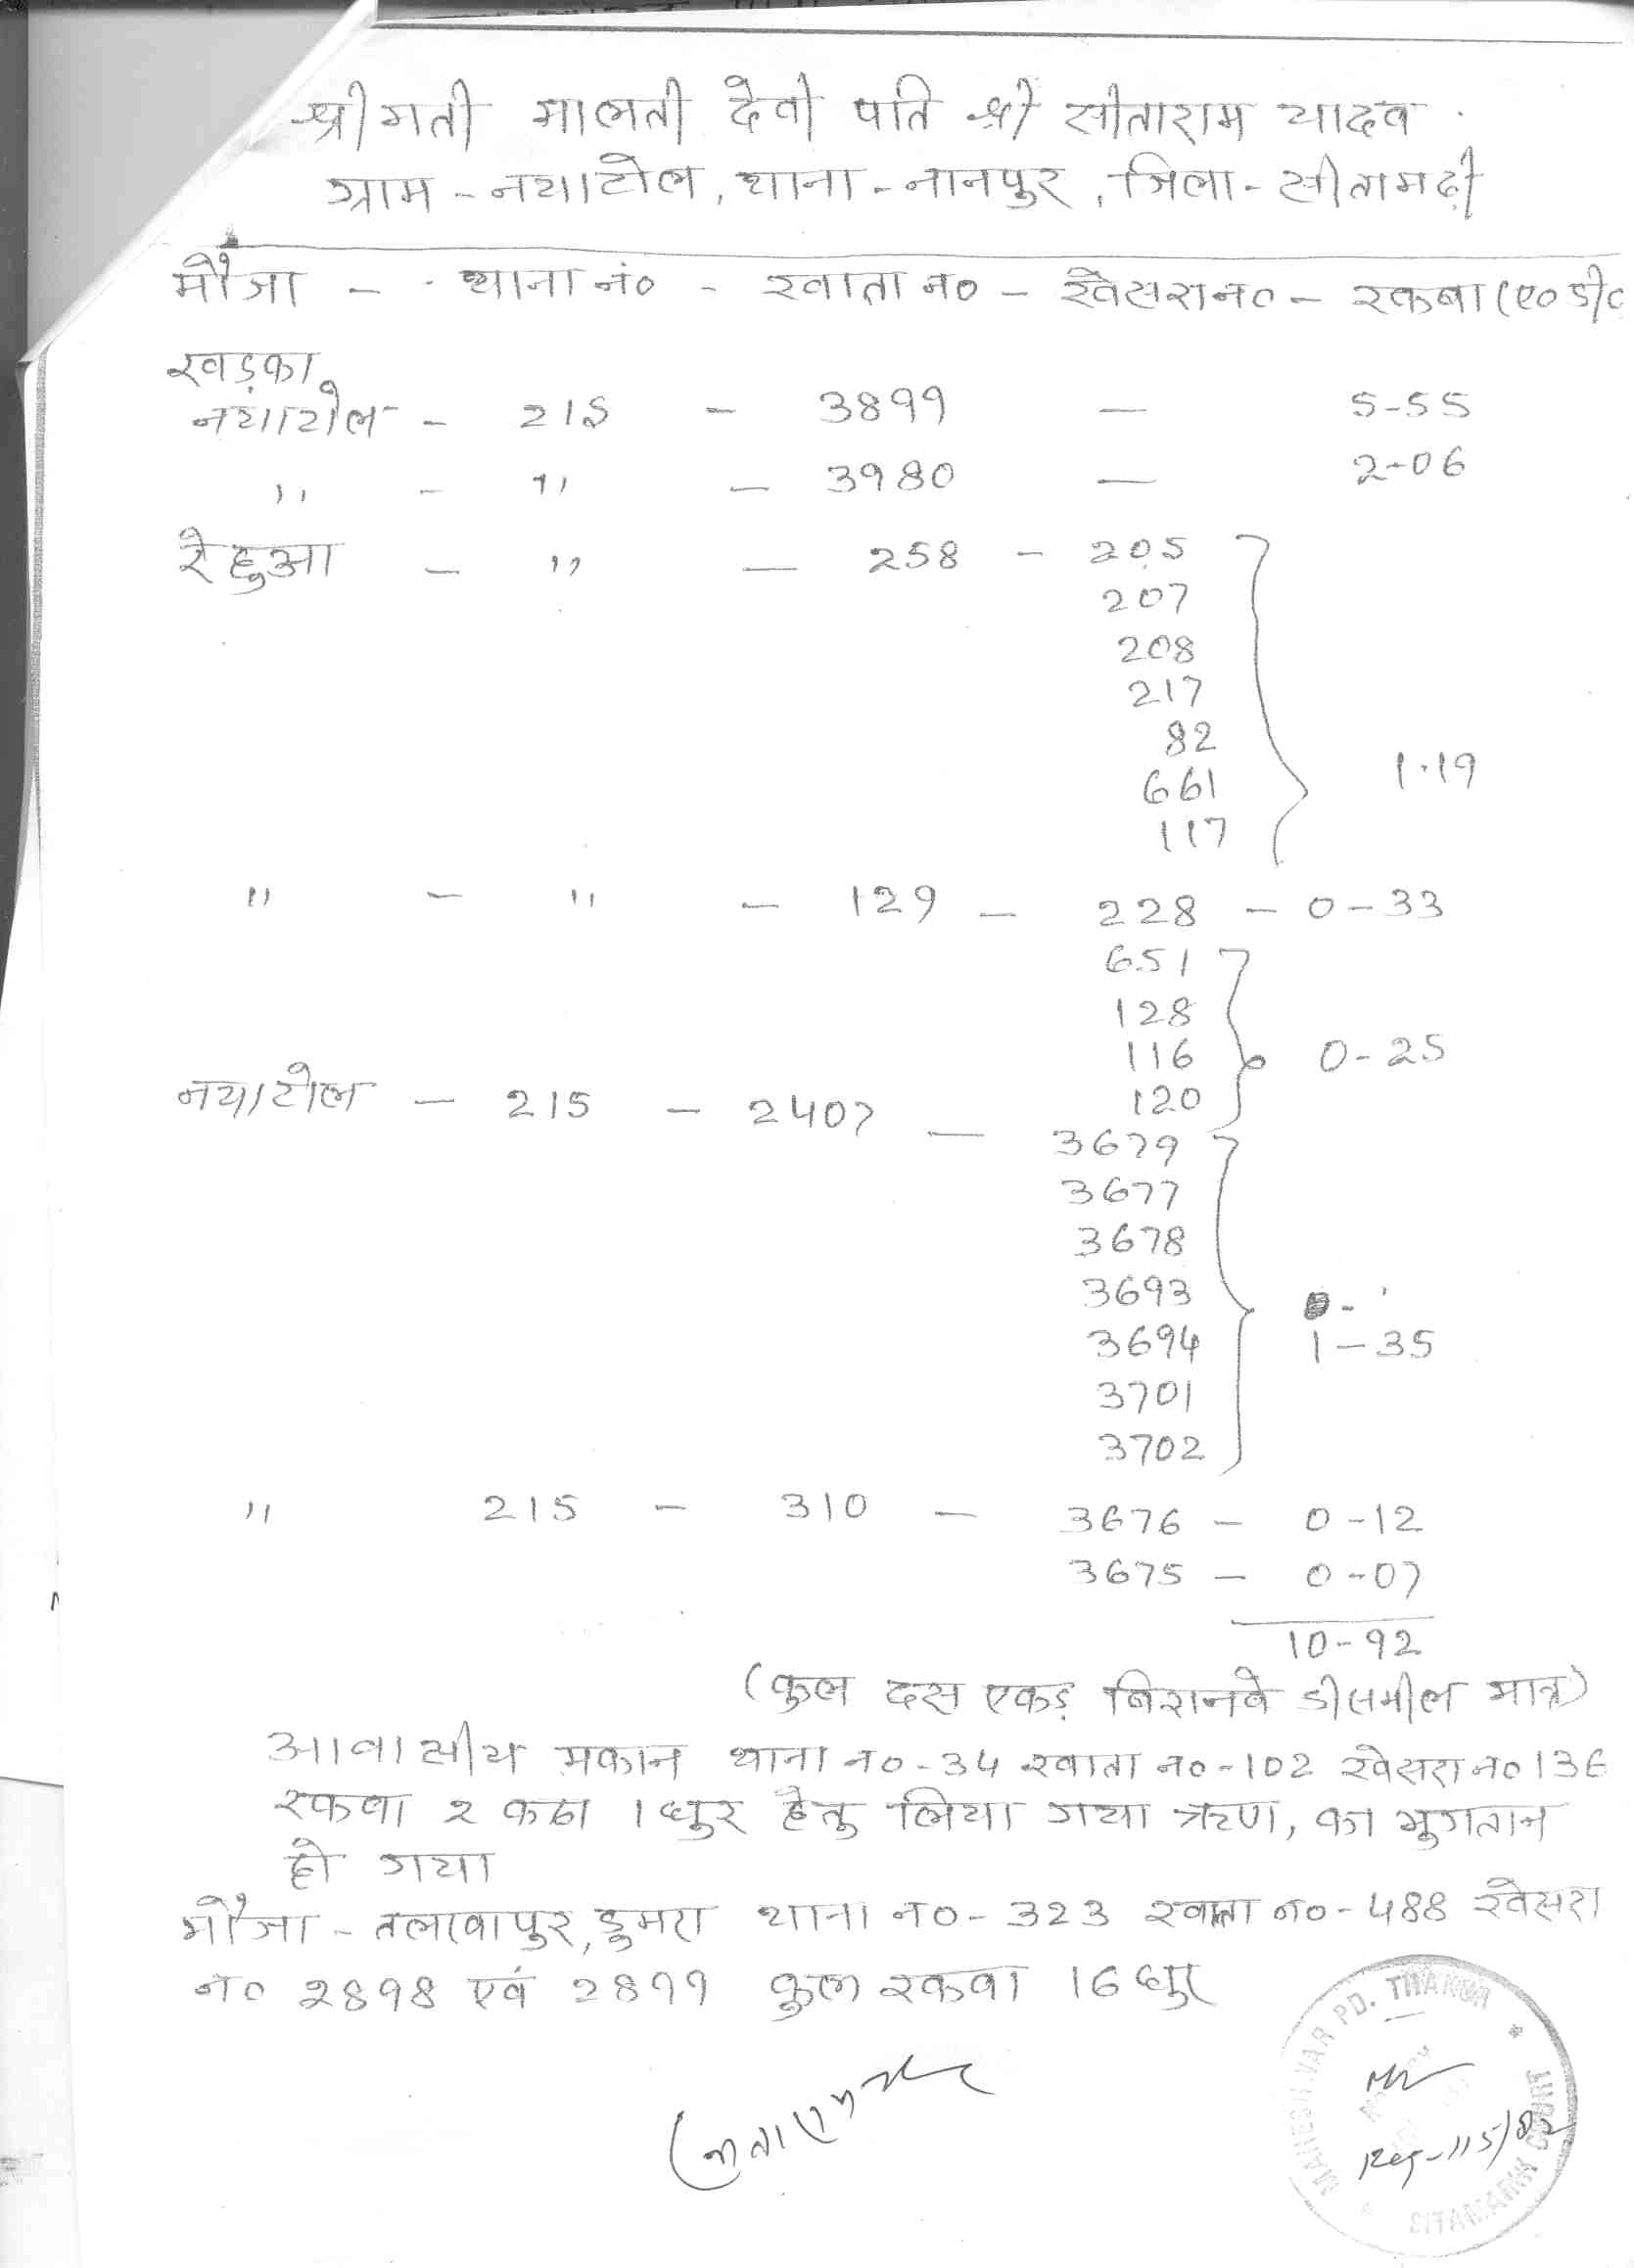 श्रीमती मालती देवी पति श्री सीताराम यादव
ग्राम - नयाटोल, थाना - नानपुर, जिला - सीतामढ़ी
मौजा - थाना नं० - खाता न० - खेसरा न० - रकबा (ए० डी०
खड़का
नयाटोल - 215 - 3899 — 5-55
" - " - 3980 — 2-06
रेहुआ - " — 258 - 205
207
208
217
82
661
117
1.19
" - " - 129 - 228 - 0-33
651
128
116
120
0-25
नयाटोल - 215 - 2407 — 3679
3677
3678
3693
3694
3701
3702
1-35
" 215 - 310 - 3676 - 0-12
3675 - 0-07
10-92
(कुल दस एकड़ बिरानवे डीसमील मात्र)
आवासीय मकान थाना न०-34 खाता न०-102 खेसरा न० 136
रकवा 2 कठा 1 धुर हेतु लिया गया ऋण, का भुगतान
हो गया
मौजा - तलखापुर, डुमरा थाना न०- 323 खाता न०- 488 खेसरा
न० 2898 एवं 2899 कुल रकवा 16 धुर
MAHESHWAR PD. THAKUR
SITAMARHI COURT
Reg-115/82